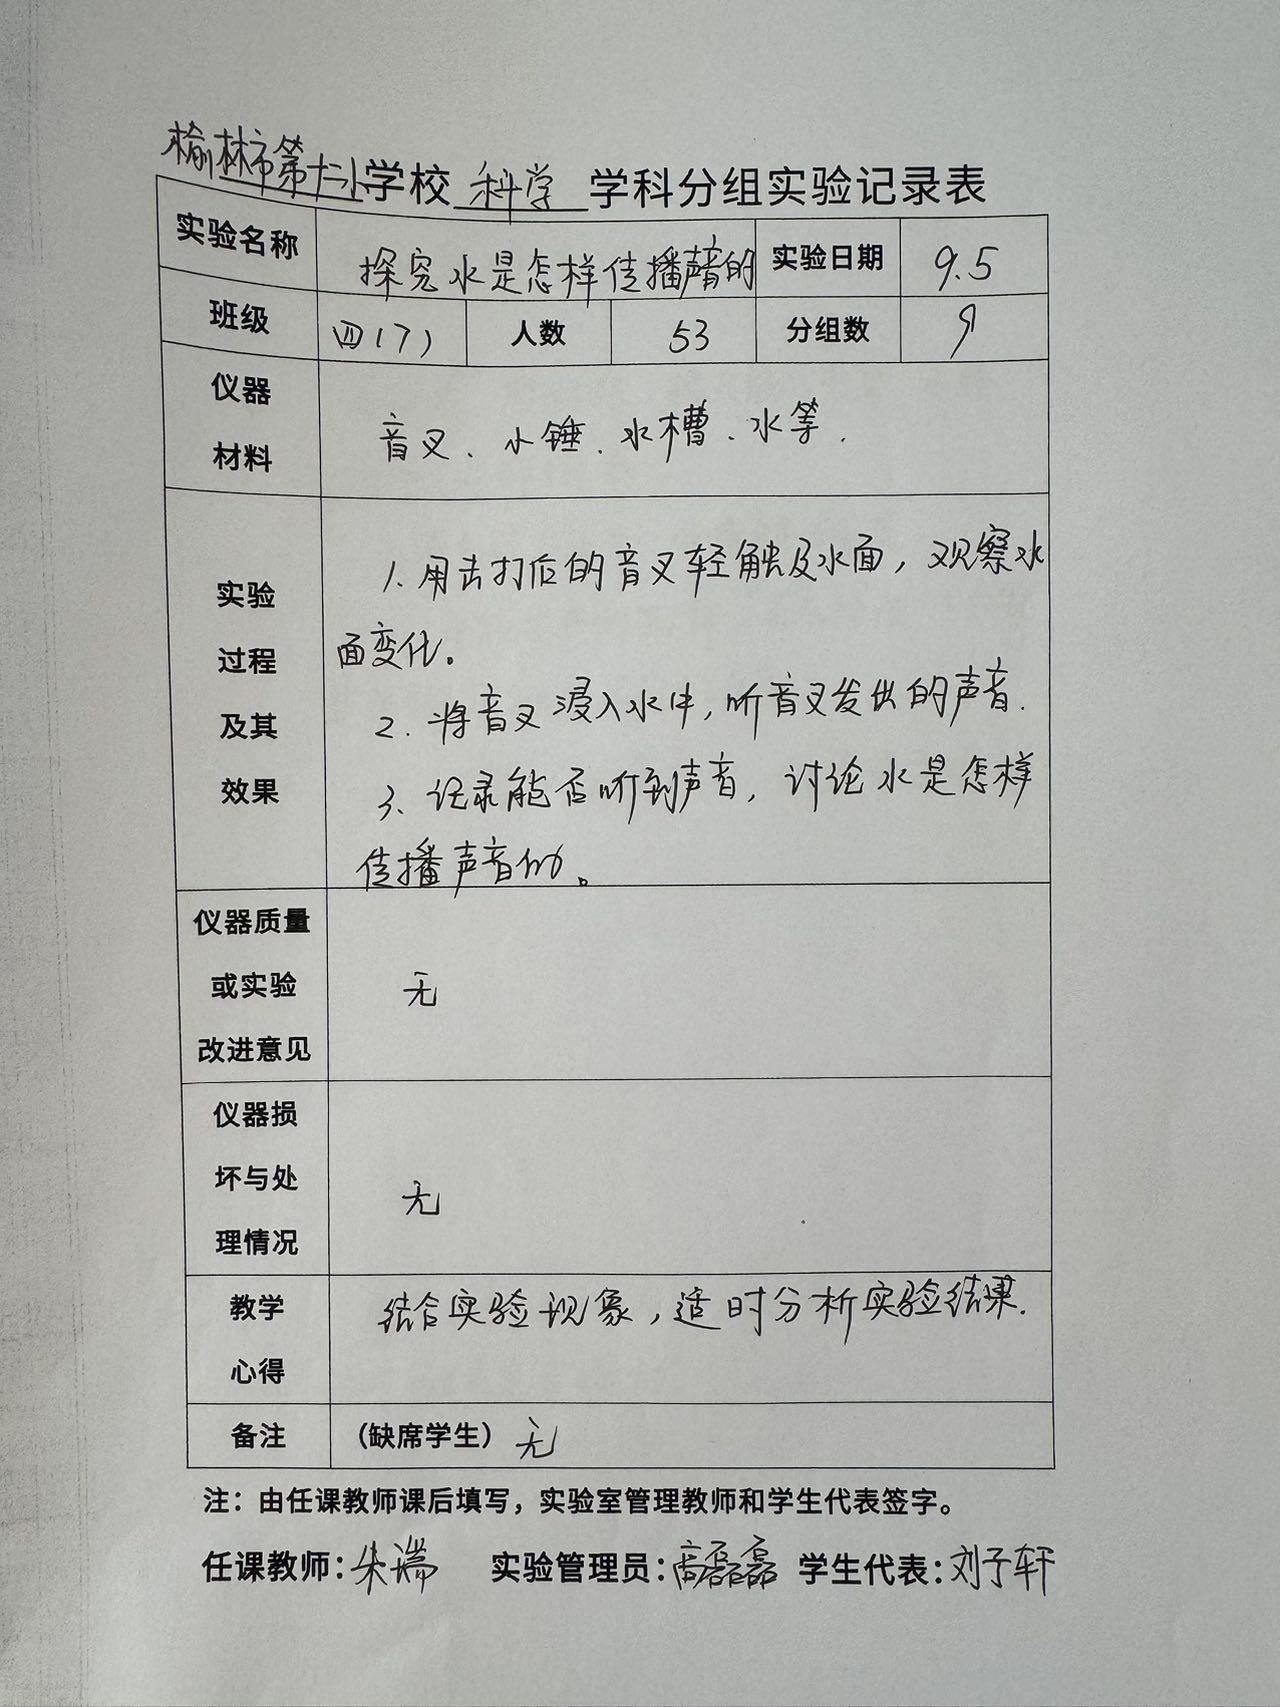 榆林市第十二小学校 科学 学科分组实验记录表
实验名称 探究水是怎样传播声音的 实验日期 9.5
班级 四(7) 人数 53 分组数 9
仪器
材料
音叉、小锤、水槽、水等.
实验
过程
及其
效果
1.用击打后的音叉轻触及水面，观察水
面变化。
2.将音叉浸入水中,听音叉发出的声音.
3、记录能否听到声音，讨论水是怎样
传播声音的。
仪器质量
或实验
改进意见
无
仪器损
坏与处
理情况
无
教学
心得
结合实验现象，适时分析实验结果.
备注 (缺席学生) 无
注：由任课教师课后填写，实验室管理教师和学生代表签字。
任课教师:朱端 实验管理员:高磊磊 学生代表:刘子轩